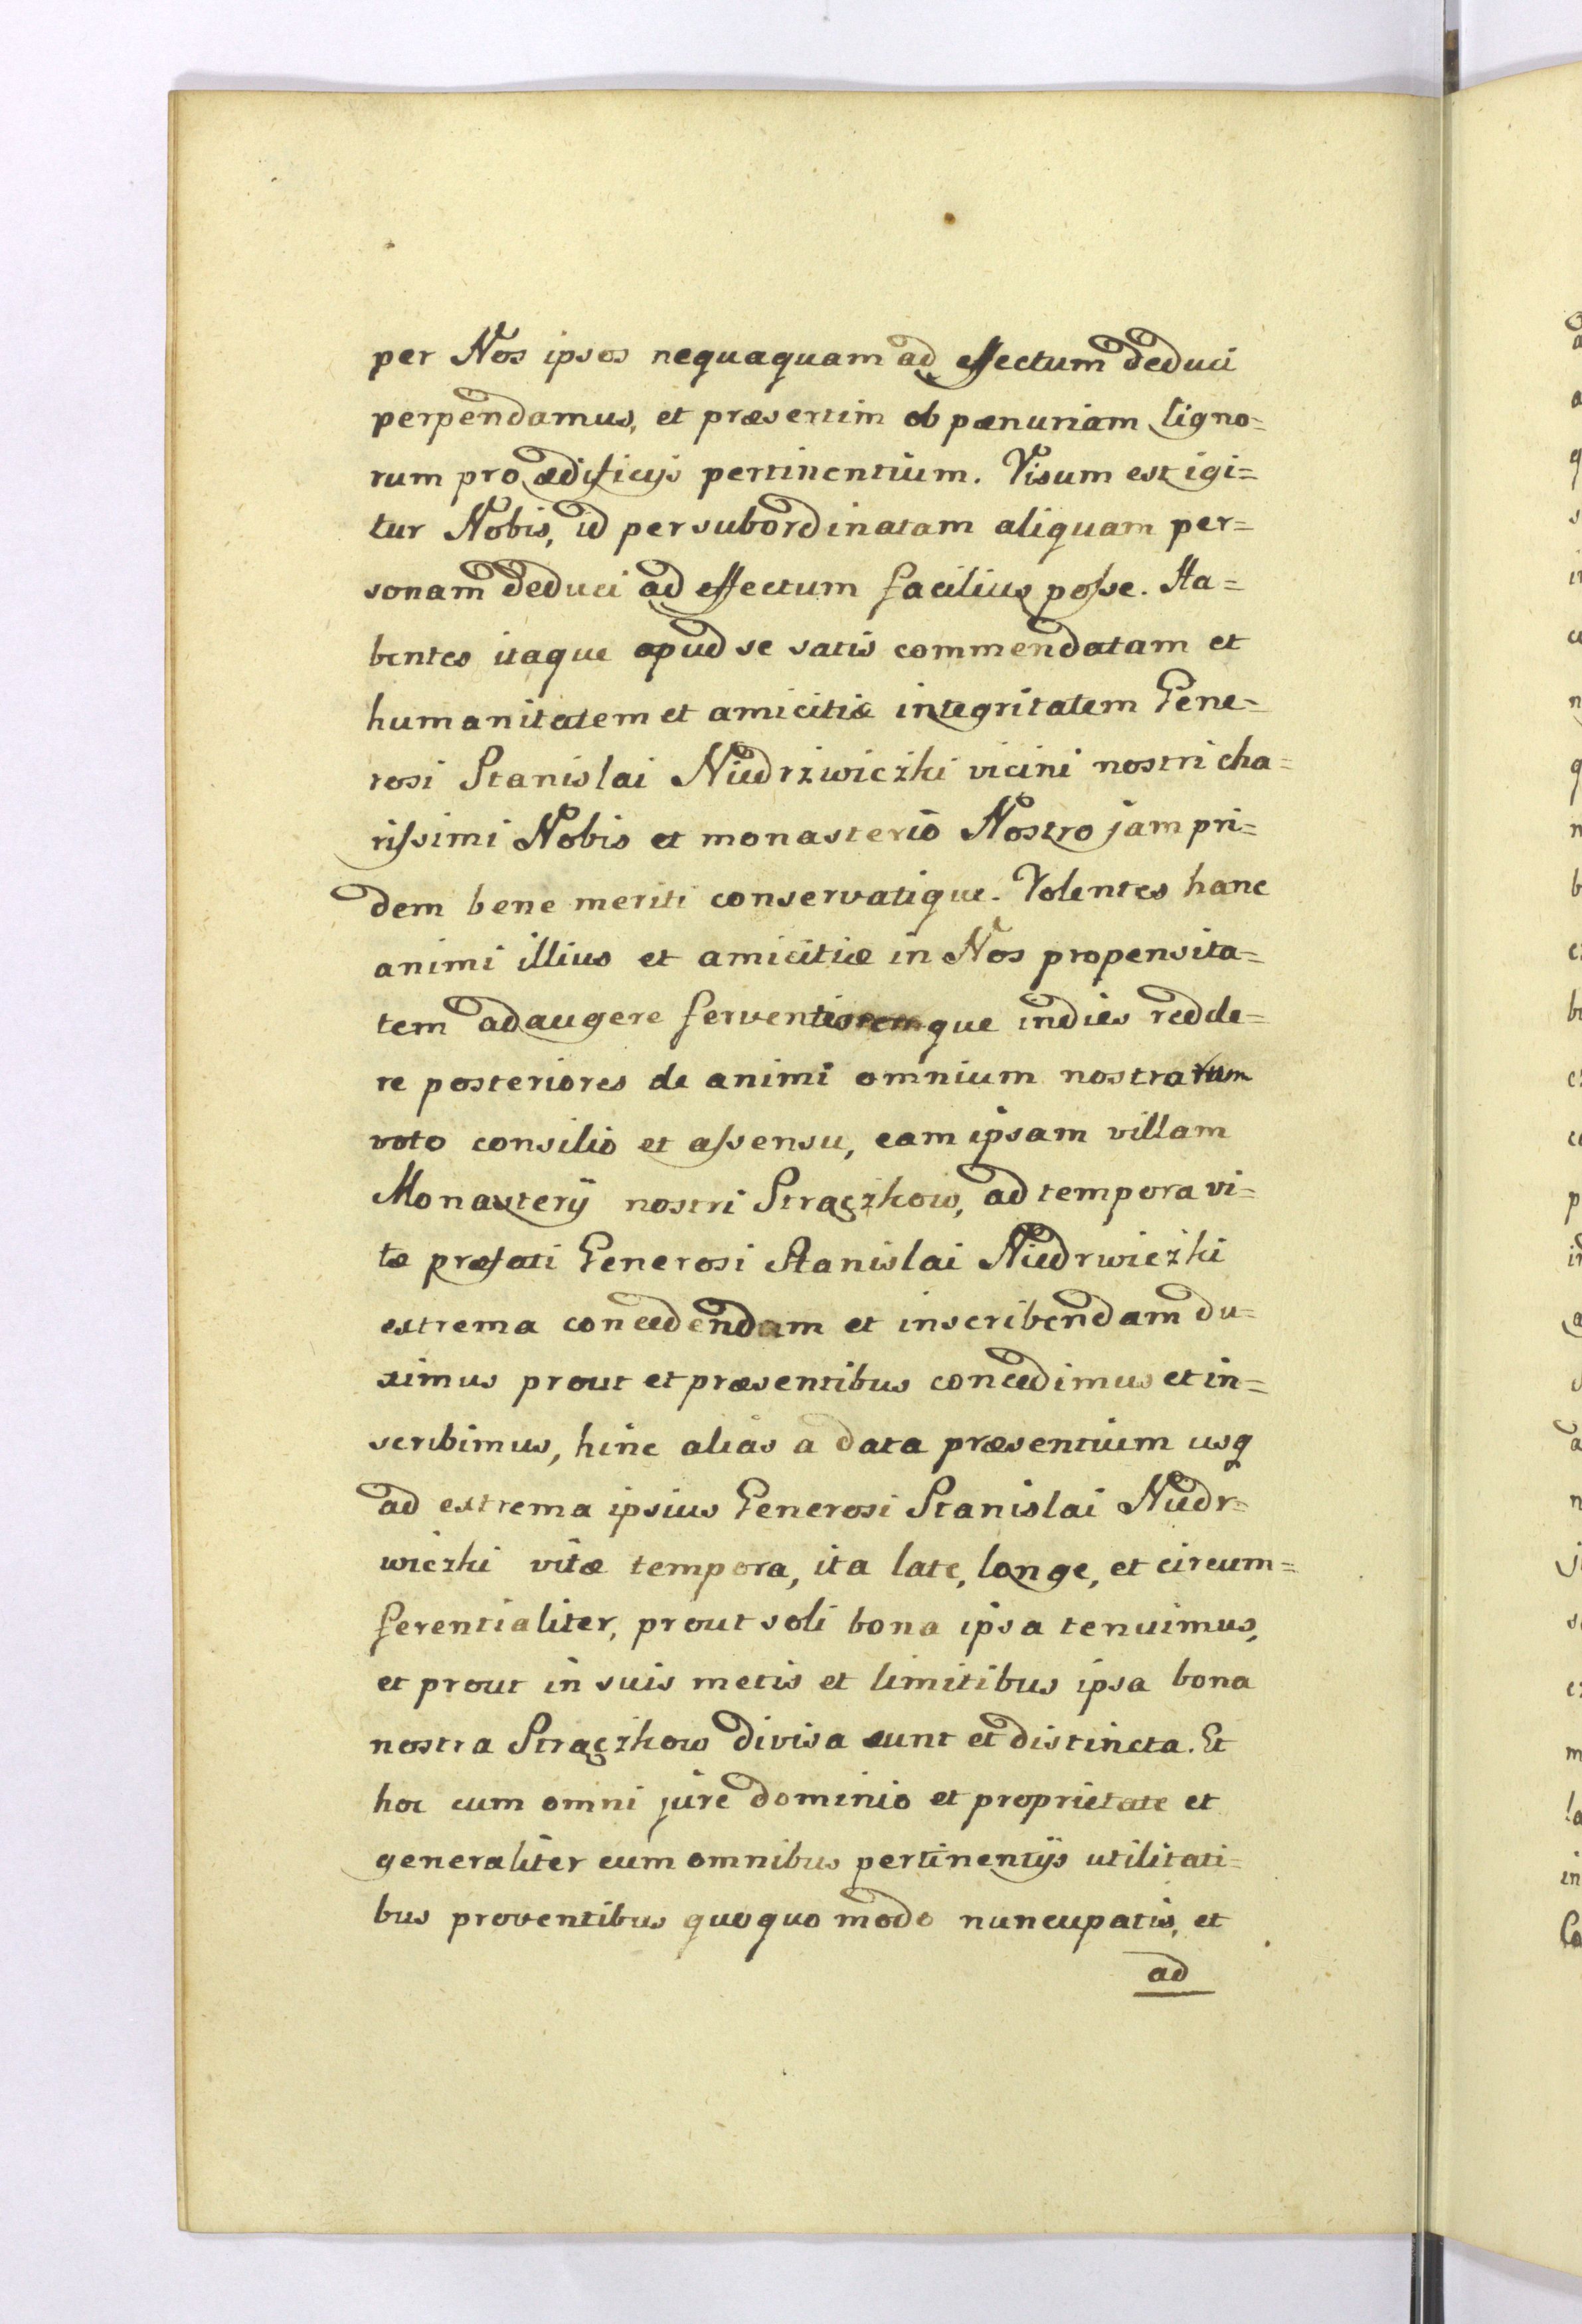 per Nos ipsos nequaquam ad effectum deduci
perpendamus, et præsertim ob pænuriam ligno=
rum pro ædificijs pertinentium. Visum est igi=
tur Nobis, id per subordinatam aliquam per=
sonam deduci ad effectum facilius posse. Ha=
bentes itaque apud se satis commendatam et
humanitatem et amicitiæ integritatem Gene=
rosi Stanislai Niedrzwiczki vicini nostri cha=
rissimi Nobis et monasterio Nostro jam pri=
dem bene meriti conservatique. Volentes hanc
animi illius et amicitiæ in Nos propensita=
tem adaugere ferventioremque indies redde=
re posteriores de animi omnium nostrorum
voto consilio et assensu, eam ipsam villam
Monasterij nostri Strączkow, ad tempora vi=
tæ præfati Generosi Stanislai Niedrwiczki
extrema concedendam et inscribendam du=
ximus prout et præsentibus concedimus et in=
scribimus, hinc alias a data præsentium usq
ad extrema ipsius Generosi Stanislai Niedr=
wiczki vitæ tempora, ita late, longe, et circum=
ferentialiter, prout soli bona ipsa tenuimus,
et prout in suis metis et limitibus ipsa bona
nostra Strączkow divisa sunt et distincta. Et
hoc cum omni jure dominio et proprietate et
generaliter cum omnibus pertinentijs utilitati=
bus proventibus quoquo modo nuncupatis, et
ad